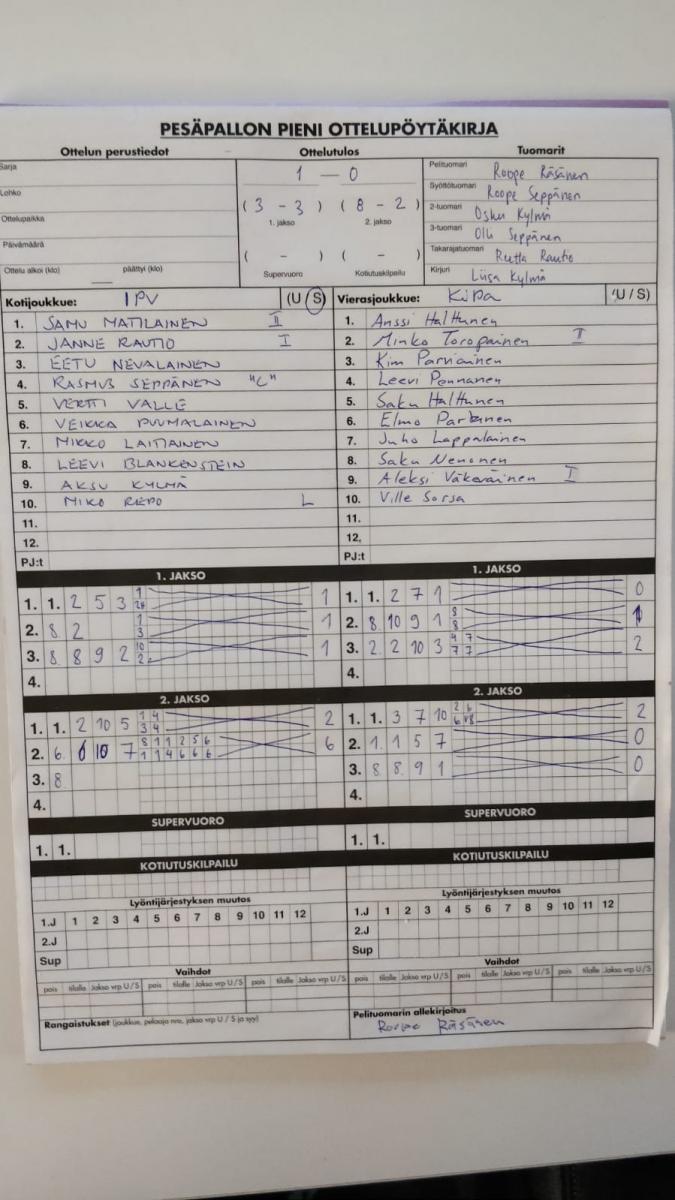 PESÄPALLON PIENI OTTELUPÖYTÄKIRJA
Ottelun perustiedot Ottelutulos Tuomarit
Sarja
Lohko
Ottelupaikka
Päivämäärä
Ottelu alkoi (klo) päättyi (klo)
1 — 0
( 3 - 3 ) ( 8 - 2 )
1. jakso 2. jakso
( - ) ( - )
Supervuoro Kotiutuskilpailu
Pelituomari Roope Räsänen
Syöttötuomari Roope Seppänen
2-tuomari Osku Kylmä
3-tuomari Olli Seppänen
Takarajatuomari Rutta Rautio
Kirjuri Liisa Kylmä
Kotijoukkue: IPV (U / S)
1. SAMU MATILAINEN II
2. JANNE RAUTIO I
3. EETU NEVALAINEN
4. RASMUS SEPPÄNEN "C"
5. VERTTI VALLE
6. VEIKKA PUUMALAINEN
7. MIKKO LAITIAINEN
8. LEEVI BLANKENSTEIN
9. AKSU KYLMÄ
10. MIKO REPO L
11.
12.
PJ:t
Vierasjoukkue: KiPa (U / S)
1. Anssi Halttunen
2. Minko Toropainen II
3. Kim Parviainen
4. Leevi Pennanen
5. Saku Halttunen
6. Elmo Partanen
7. Juho Lappalainen
8. Saku Nenonen
9. Aleksi Väkeväinen I
10. Ville Sorsa
11.
12.
PJ:t
1. JAKSO
1. 1. 2 5 3 1
2. 8 2 1 3 1
3. 8 8 9 2 10 2 1
4.
1. JAKSO
1. 1. 2 7 1 0
2. 8 10 9 1 8 8
3. 2 2 10 3 4 7 7 7 2
4.
2. JAKSO
1. 1. 2 10 5 1 4 3 4 2
2. 6 6 10 7 8 1 1 2 5 6 1 1 4 6 6 6 6
3. 8
4.
2. JAKSO
1. 1. 3 7 10 2 6 2
2. 1 1 5 7 0
3. 8 8 9 1 0
4.
SUPERVUORO
1. 1.
SUPERVUORO
1. 1.
KOTIUTUSKILPAILU
KOTIUTUSKILPAILU
Lyöntijärjestyksen muutos
1.J 1 2 3 4 5 6 7 8 9 10 11 12
2.J
Sup
Lyöntijärjestyksen muutos
1.J 1 2 3 4 5 6 7 8 9 10 11 12
2.J
Sup
Vaihdot
pois tilalle Jakso vrp U/S pois tilalle Jakso vrp U/S pois tilalle Jakso vrp U/S
Vaihdot
pois tilalle Jakso vrp U/S pois tilalle Jakso vrp U/S pois tilalle Jakso vrp U/S
Rangaistukset (joukkue, pelaaja nro, jakso vrp U / S ja syy)
Pelituomarin allekirjoitus
Roope Räsänen